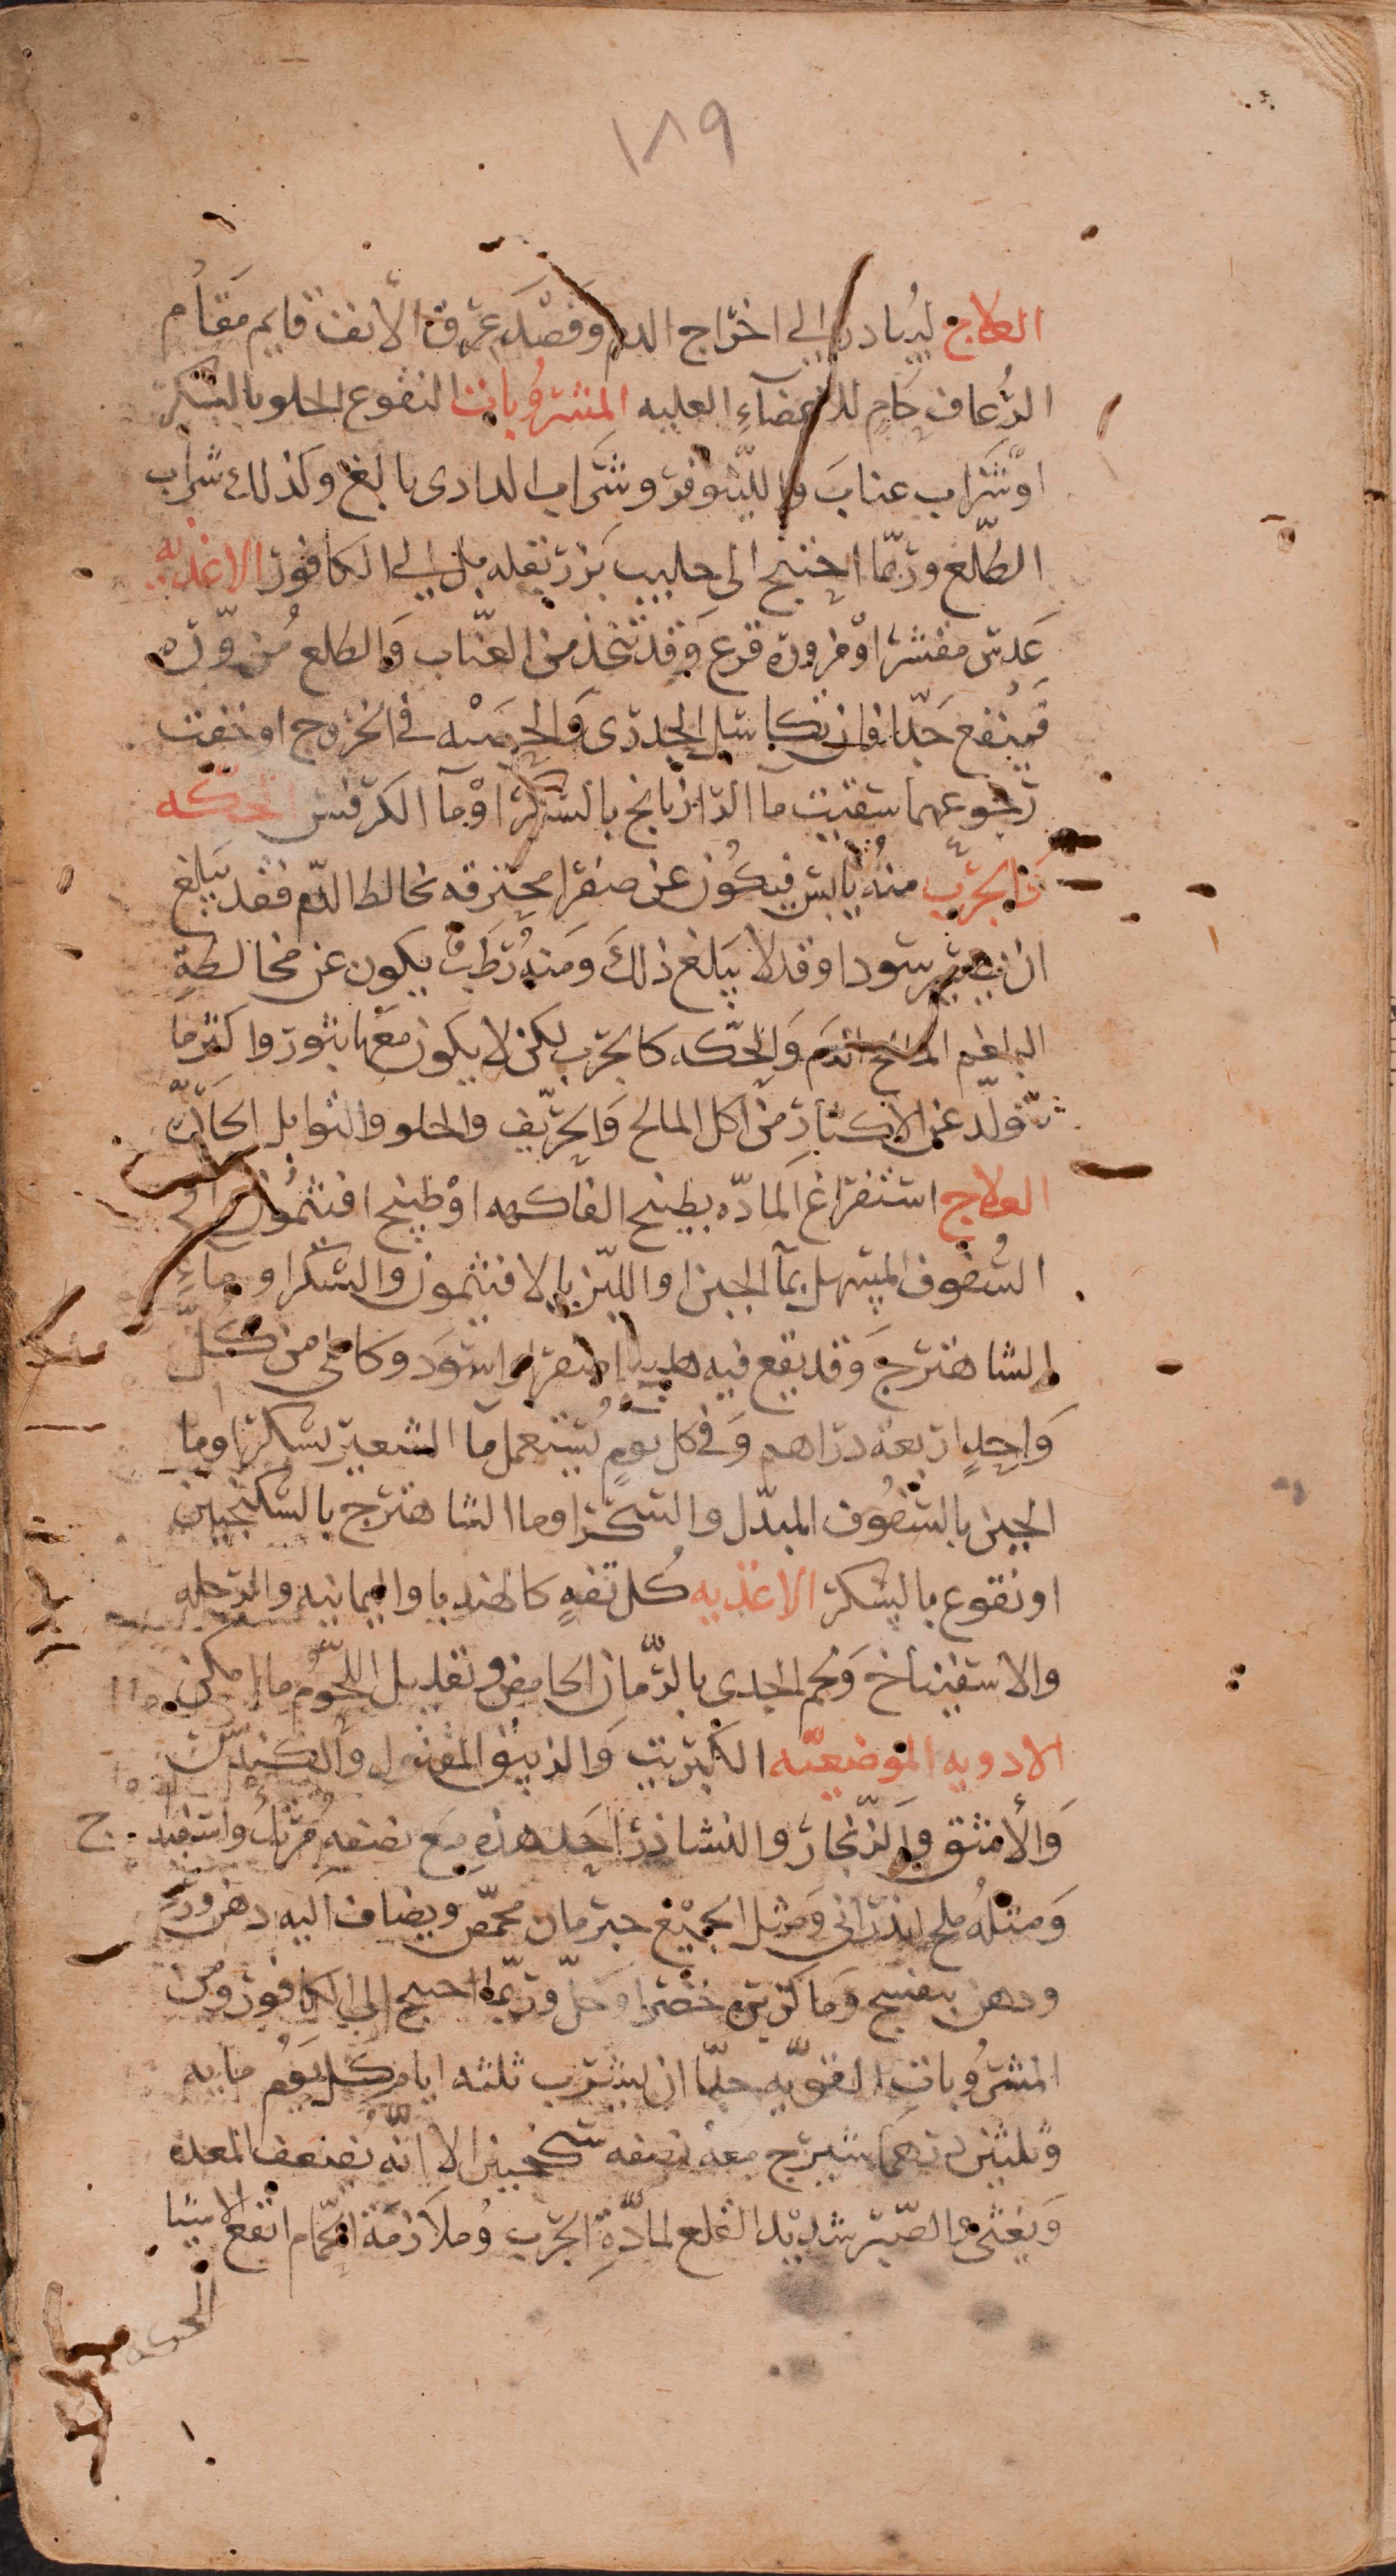 ١٨٩
العلاج ليبادر الي اخراج الدم وفصد عرق الأنف قايم مقام
الرعاف حام للاعضاء العليه المشروبات النقوع الحلو بالسكر
او شراب عناب والليتوفر وشراب الدادى بالغ وكذلك شراب
الطلع وربما احتيج الى حليب بزر بقله بل الي الكافور الاغذيه
عدس مقشر او مزوره قرع وقد تتخذ من العناب والطلع مزوره
فينفع جدا فان تكاسل الجدرى والحصبه في الخروج او خفت
رجوعهما سقيت ما الرازيانج بالسكر او ما الكرفس الحكه
والجرب منه يابس فيكون عن صفرا محترقه تخالط الدم فقد يبلغ
ان يصير سودا وقد لا يبلغ ذلك ومنه رطب يكون عن مخالطة
البلغم المالح الدم والحكه كالجرب لكن لا يكون معها بثور واكثر ما
تتولد عن الاكثار من اكل المالح والحريف والحلو والتوابل الحاره
العلاج استفراغ الماده بطبيخ الفاكهه او طبيخ افتيمون او
السفوف المسهل بما الجبن او اللبن بالافتيمون والسكر او ماء
الشاهترج وقد يقع فيه هليلج اصفر واسود وكابلى من كل
واحد اربعة دراهم وفى كل يوم يستعمل ما الشعير بسكر او ما
الجبن بالسفوف المبدل والسكر او ما الشاهترج بالسكنجبين
او نقوع بالسكر الاغذيه كل تفه كالهندبا واليمانيه والرجله
والاسفيناخ ولحم الجدى بالرمان الحامض وتقليل اللحوم ما امكن
الادويه الموضعيه الكبريت والزيبق المقتول والكندس
والأمشق والزنجار والنشاذر احد هذه مع نصفه مرتك واسفيداج
ومثله ملح اندرانى ومثل الجميع حب رمان محمص ويضاف اليه دهن ورد
ودهن بنفسج وما كزبره خضرا وخل وربما احتيج الى الكافور ومن
المشروبات القويه جدا ان يشرب ثلثه ايام كل يوم مايه
وثلثين درهما شيرج معه نصفه سكنجبين الا انه يضعف المعده
ويغثى والصبر شديد القلع لمادة الجرب وملازمة الحمام انفع الاشيا